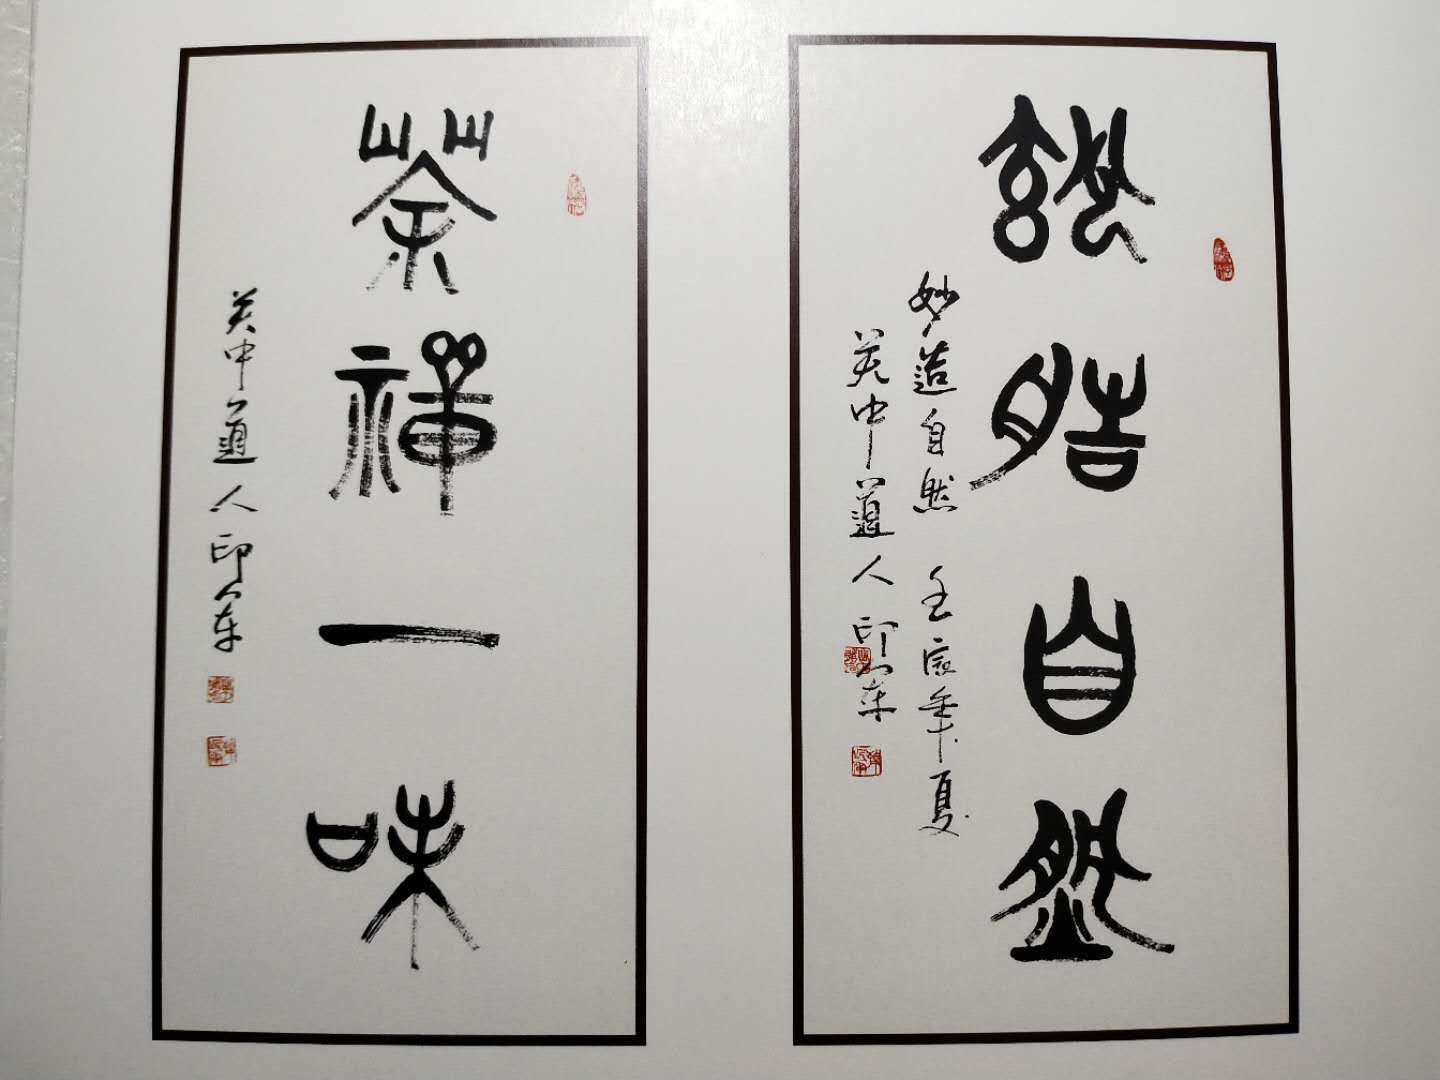 妙造自然
妙造自然 壬辰年夏
关中道人印军
茶禅一味
关中道人印军